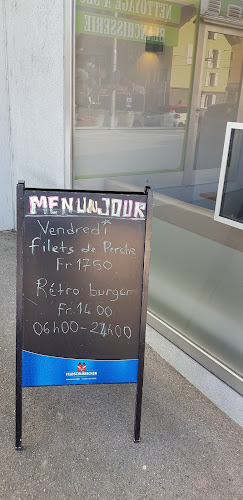 NETTOYAGE À SEC
BLANCHISSERIE
MENU DU JOUR
Vendredi
filets de Perche
Fr 17.50
Rétro burger
Fr. 14.00
06h00-21h00
FELDSCHLÖSSCHEN